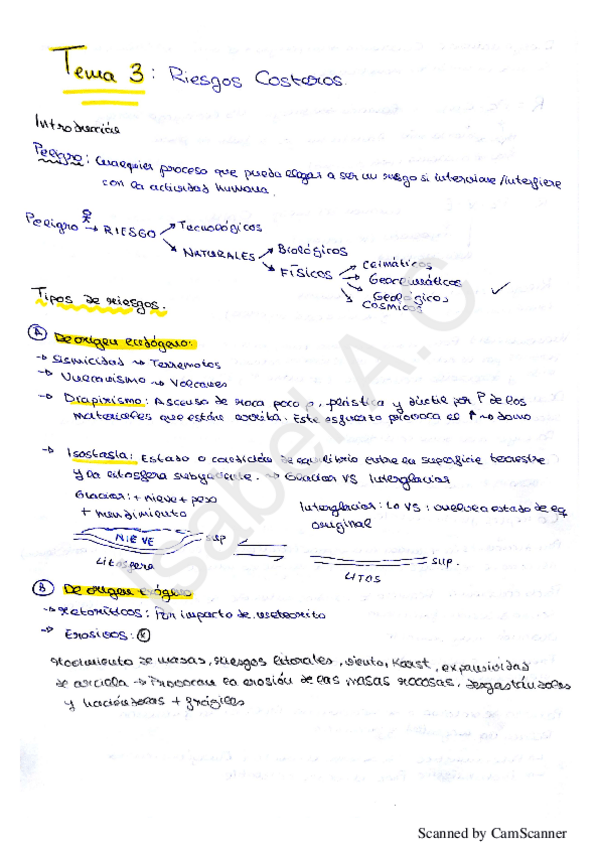 Tema 3: Riesgos Costeros.
Introducción
Peligro: Cualquier proceso que pueda llegar a ser un riesgo si interviene/interfiere
con la actividad humana.
Peligro → RIESGO → Tecnológicos
→ NATURALES → Biológicos
→ FÍSICOS → Climáticos
→ Geoclimáticos
→ Geológicos
Cósmicos
Tipos de riesgos.
A De origen endógeno:
→ Sismicidad → Terremotos
→ Vulcanismo → Volcanes
→ Diapirismo: Ascenso de roca poco ρ, plástica y dúctil por P de los
materiales que están encima. Este esfuerzo provoca el ↑ → domo
→ Isostasia: Estado o condición de equilibrio entre la superficie terrestre
y la litosfera subyacente. → Glaciar VS Interglaciar
Glaciar: + nieve + peso
+ hundimiento
Interglaciar: Lo VS: vuelve a estado de eq
original
NIEVE
sup
Litosfera
sup.
LITOS
B De origen exógeno
→ Meteoríticos: Por impacto de meteorito
→ Erosivos: K
Movimiento de masas, riesgos litorales, viento, Karst, expansividad
de arcilla → Provocan la erosión de las masas rocosas, desgastándolas
y haciéndolas + frágiles
Isabel A.C
Scanned by CamScanner